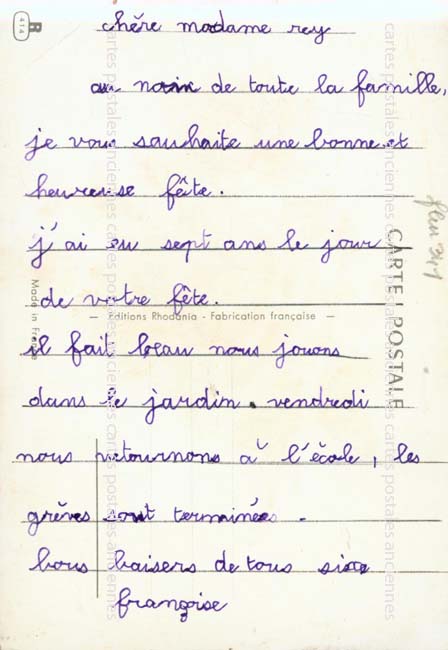 R
414
chère madame rey
au nom de toute la famille,
je vous souhaite une bonne et
heureuse fête.
j'ai eu sept ans le jour
de votre fête.
il fait beau nous jouons
dans le jardin. vendredi
nous retournons à l'école, les
grèves sont terminées.
bons baisers de tous six
françoise
— Editions Rhodania - Fabrication française —
Made in France
CARTE POSTALE
cartes postales anciennes cartes postales anciennes